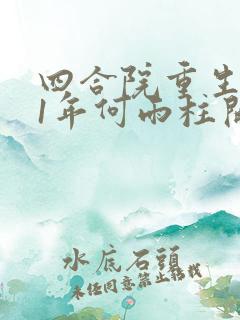 四合院重生
1年何雨柱
水底石頭
未任同意禁止轉載